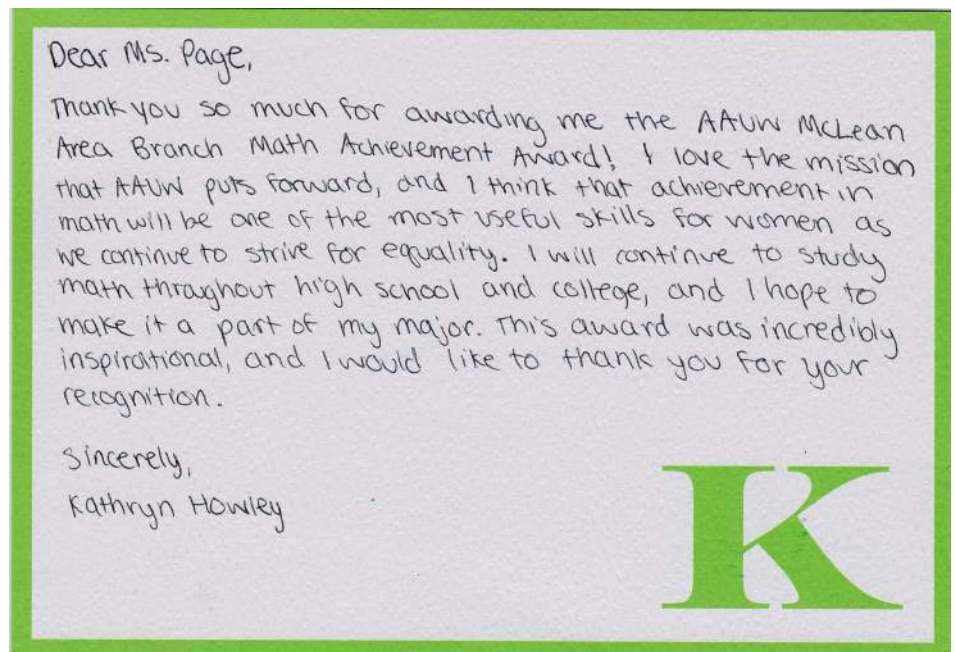 Dear Ms. Page,
Thank you so much for awarding me the AAUW McLean
Area Branch Math Achievement Award! I love the mission
that AAUW puts forward, and I think that achievement in
math will be one of the most useful skills for women as
we continue to strive for equality. I will continue to study
math throughout high school and college, and I hope to
make it a part of my major. This award was incredibly
inspirational, and I would like to thank you for your
recognition.
Sincerely,
Kathryn Howley
K